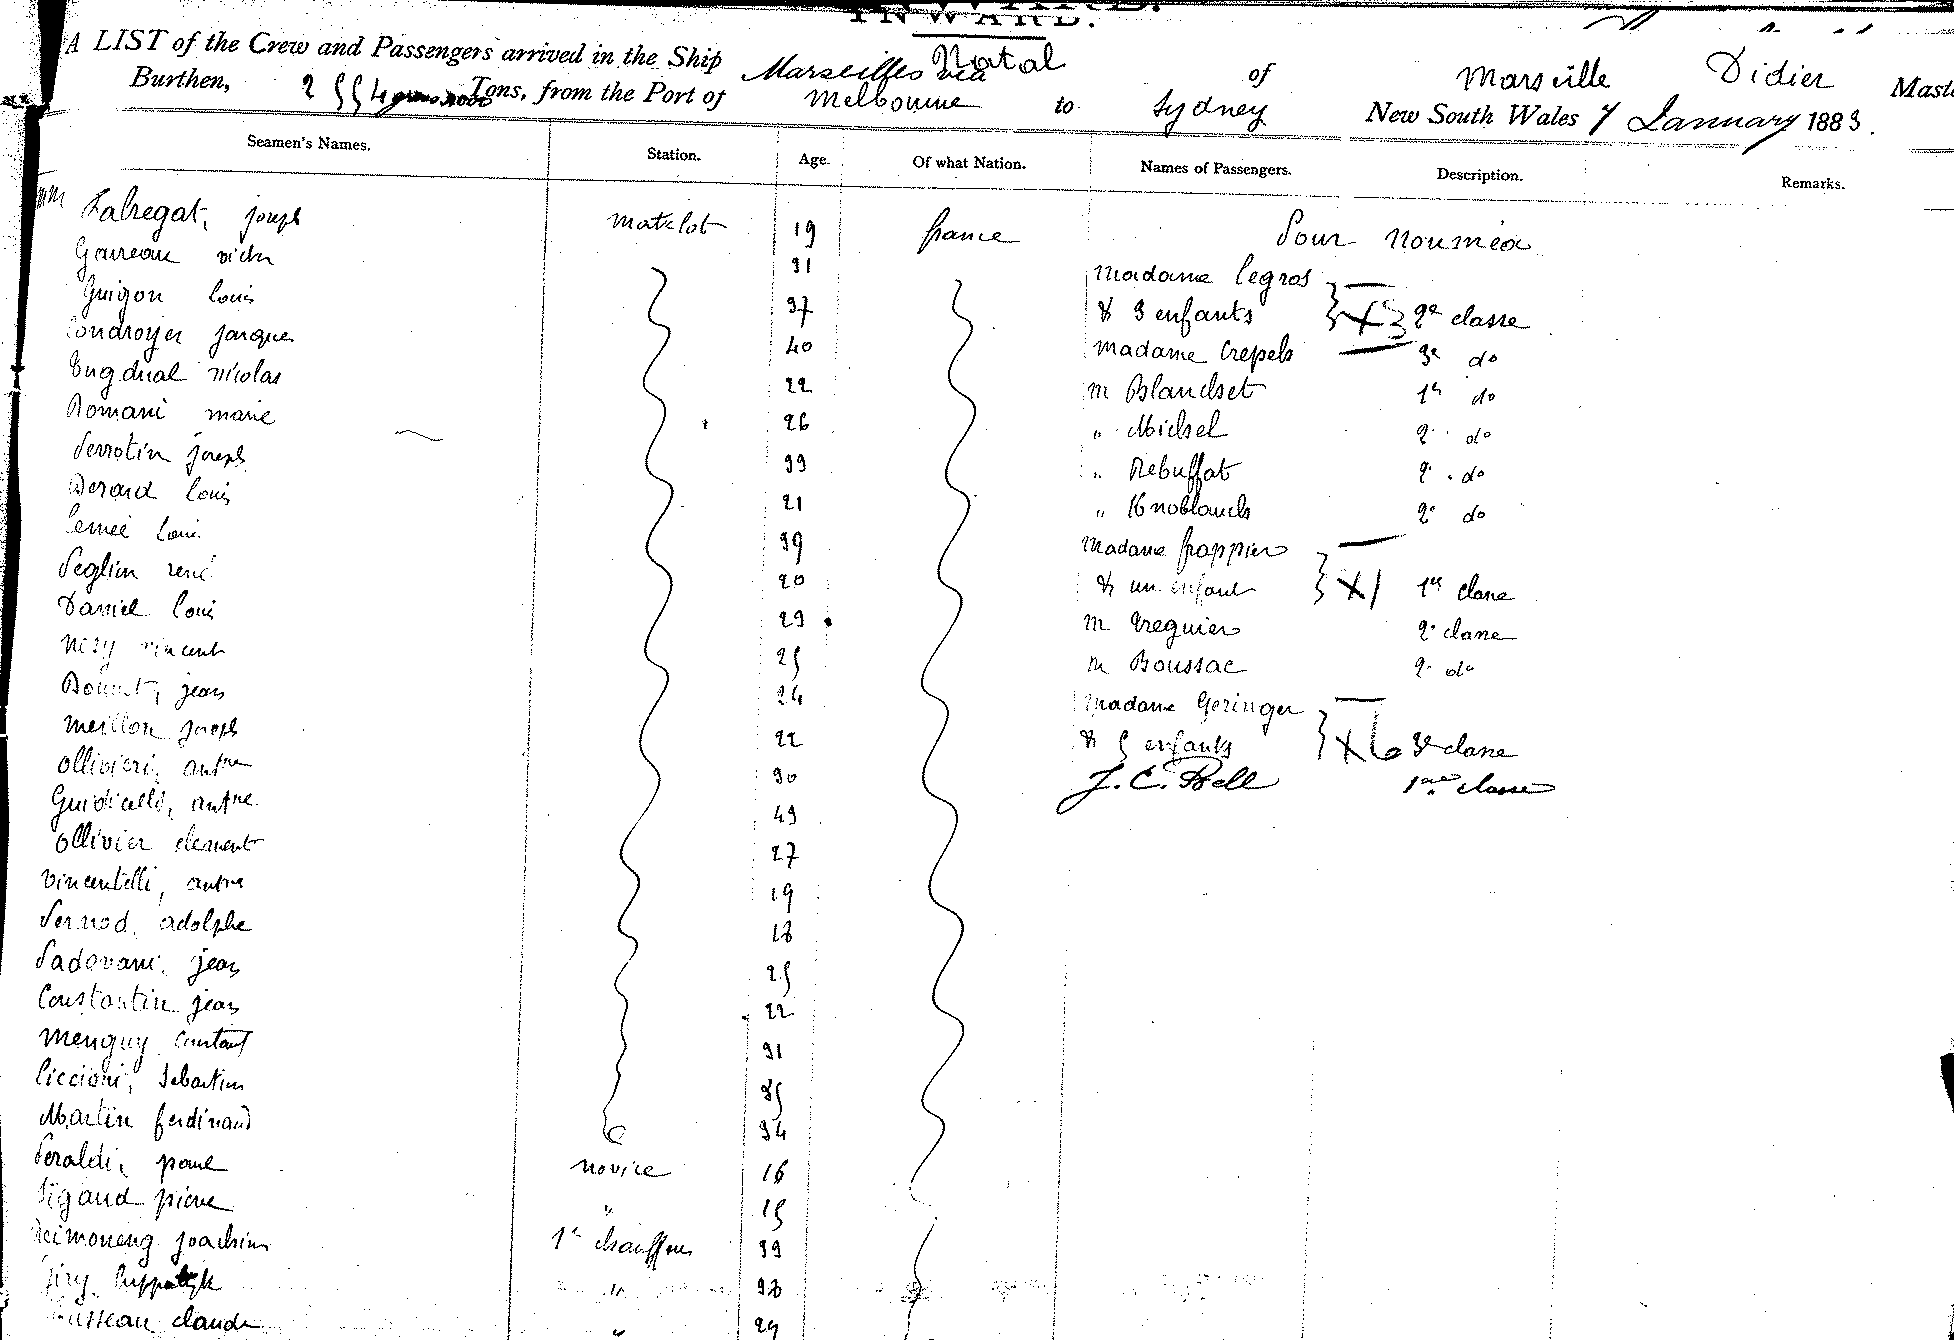 INWARD.
A LIST of the Crew and Passengers arrived in the Ship Natal of Marseille Didier
Burthen, Tons, from the Port of Marseilles via Melbourne to Sydney New South Wales 7 January 1883.
Seamen's Names. Station. Age. Of what Nation. Names of Passengers. Description. Remarks.
joseph matelot 19 france Pour Nouméa
victor 31 Madame Legros
Guigon louis 37 & 3 enfants 2e classe
jacques 40 Madame Crepels 3e do
nicolas 22 m Blandset 1re do
Romani marie 26 " Michel 2e do
Perrotin joseph 33 " Rebuffat 2e do
Berard louis 21 " 2e do
louis 39 Madame frappier
Peglion rené 20 & un enfant 1re classe
Daniel louis 29 m Treguier 2e classe
vincent 25 m Boussac 2e do
jean 24 Madame Geringer
Meillon joseph 22 & 5 enfants 6 3e classe
Ollivieri, antne 30 J. C. Bell 1ere classe
Guidicelli, antne 43
Ollivier clement 27
Vincentelli, antne 19
Pernod, adolphe 18
Padovani, jean 25
Constantin jean 22
Menguy constant 31
Ciccioni, Sebastien 35
Martin ferdinand 34
Peraldi, paul novice 16
Sigaud pierre " 15
joachim 1er chauffeur 39
" 38
claude " 29